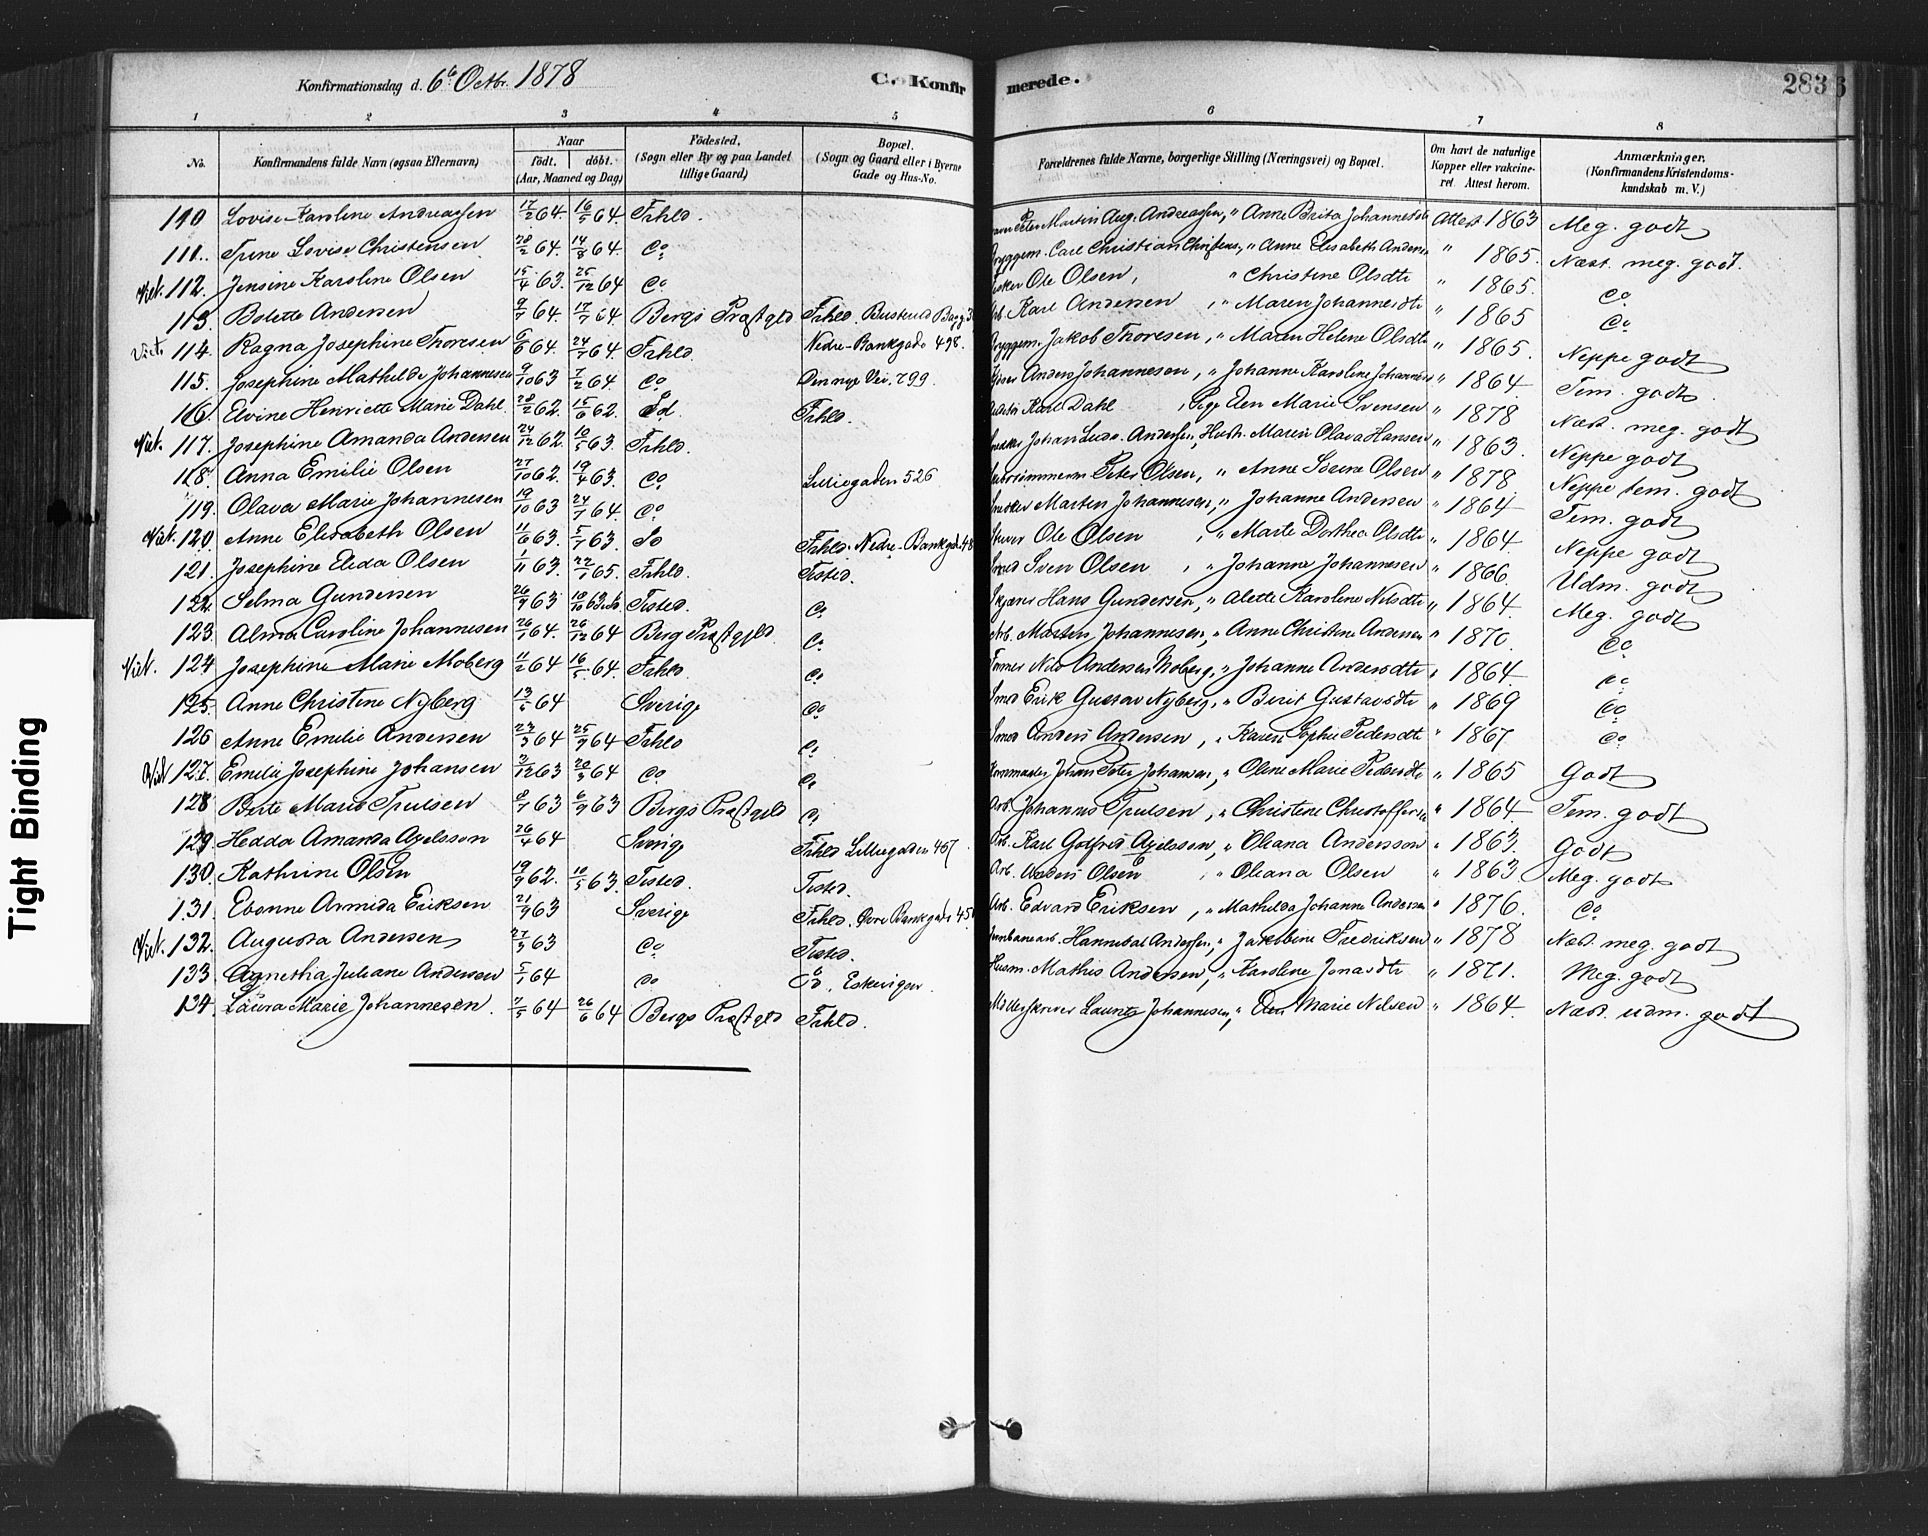 Konfirmationsdag d. 6te Octbr. 1878 C. Konfir merede. 283
1 2 3 4 5 6 7 8
No. Konfirmandens fulde Navn (ogsaa Efternavn) Naar födt. döbt. (Aar, Maaned og Dag) Födested, (Sogn eller By og paa Landet tillige Gaard) Bopæl. (Sogn og Gaard eller i Byerne Gade og Hus-No. Forældrenes fulde Navne, borgerlige Stilling (Næringsvei) og Bopæl. Om havt de naturlige Kopper eller vakcineret. Attest herom. Anmærkninger. (Konfirmandens Kristendomskundskab m. V.)
110 Lovise Karoline Andreassen 17/2 64. 16/5 64. Frhld. Martin Aug. Andreassen, " Anne Brita Johannesdt Attest 1863 Meg. godt
111. Trine Lovise Christensen 28/2 64. 14/8 64. do Bryggem. Carl Christian Christens, " Anne Elisabeth Andersen " 1865. Næst. meg. godt.
112. Jensine Karoline Olsen 15/4 63. 25/12 64 do Ole Olsen, " Christine Olsdtr " 1865. do
113. Bolette Andersen 9/7 64. 17/7 64. Bergs Præstgld Frhld. Karl Andersen, " Maren Johannesdtr " 1865 do
114. Ragna Josephine Thoresen 6/6 64. 24/7 64. Frhld. Nedre-Bankgade 498. Bryggem. Jakob Thoresen, " Maren Helene Olsdtr " 1865. Neppe godt
115. Josephine Mathilde Johannesen 9/10 63 7/2 64. do Den nye Vei. 799. Anders Johannesen, " Johanne Karoline Johannes " 1864 Tem. godt
116. Elvine Henriette Marie Dahl. 28/2 62. 15/6 62. Id Frhld. Karl Dahl, Pige Elen Marie Svensen " 1878 Næst. meg. godt
117. Josephine Amanda Andersen 24/12 62. 10/5 63. Frhld. Johan Ludv. Andersen, Hustr. Maren Olava Hansen " 1863. Neppe godt
118. Anna Emilie Olsen 27/10 62. 19/4 63. do Lilliegaden 526 Peter Olsen, " Anne Sørine Olsen " 1878 Neppe tem. godt
119. Olava Marie Johannesen 19/10 63 24/7 64. do Martin Johannesen, " Johanne Andersen " 1864 Tem. godt
120. Anne Elisabeth Olsen 11/6 63. 5/7 63. do Frhld. Nedre-Bankgd. 48 Ole Olsen, " Marte Dorthea Olsdtr " 1864. Neppe godt
121. Josephine Elida Olsen 1/11 63. 22/1 65. Frhld. Tisted. Smed Sven Olsen, " Johanne Johannesen " 1866. Udm. godt
122. Selma Gundersen 26/9 63 10/10 63 Tisted. do Hans Gundersen, " Alette Karoline Nilsdtr " 1864 Meg. godt
123. Alma Caroline Johannesen 26/1 64. 26/12 64 Berg Præstgjld. do Arb. Martin Johannesen, " Anne Christine Andersen " 1870. do
124 Josephine Marie Moberg 11/2 64 16/5 64. Frhld. do Nils Andersen Moberg, " Johanne Andersdtr " 1864 do
125. Anne Christine Nyberg 13/6 64 Sverige do Smed Erik Gustav Nyberg, " Berit Gustavsdtr " 1869 do
126 Anne Emilie Andersen 23/3 64 25/9 64 Frhld do Smed Anders Andersen, " Karen Sophie Pedersdtr " 1867 do
127. Emilie Josephine Johansen 3/12 63 20/3 64 do do Johan Peter Johansen, " Oline Marie Pedersdtr " 1865 Godt
128 Berte Marie Trulsen 8/7 63 6/9 63 Bergs Præstgeld do Arb. Johannes Trulsen, " Christine Christoffersen " 1864 Tem. godt
129. Hedda Amanda Axelsson 26/4 64 Sverige Frhld Lilliegaden 467 Arb. Karl Gotfred Axelsson, " Oleana Andersson " 1863. Godt
130. Kathrine Olsen 19/9 62. 10/5 63. Tisted. Tisted. Arb. Anders Olsen, " Oleana Olsen " 1863 Meg. godt
131. Ebonne Armida Eriksen 21/9 63 Sverige Frhld. Øvre Bankgade 45 Arb. Edvard Eriksen, " Mathilda Johanne Andersen " 1876. do
132. Augusta Andersen 27/3 63 do Tisted. Hannibal Andersen, " Jakobine Fredriksen " 1878 Næst. meg. godt
133 Agnetha Juliane Andersen 5/1 64 do do, Eskevigen. Husm. Mathis Andersen, " Karoline Jonasdtr " 1871. Meg. godt
134. Laura Marie Johannesen. 7/5 64 26/6 64 Bergs Præstgld Frhld. Lauritz Johannesen, " Elen Marie Nilsen " 1864 Næst. udm. godt
Tight Binding